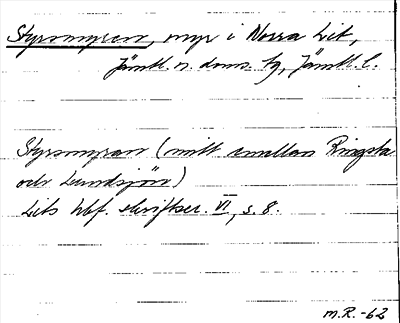 Styrsmyran, myr i Norra Lit,
Jämtl. n. doms. tg, Jämtl. l.
Styrsmyran (mitt emellan Ringsta
och Lundsjön)
Lits hbf. skriftser. VI, s. 8.
M.R. -62